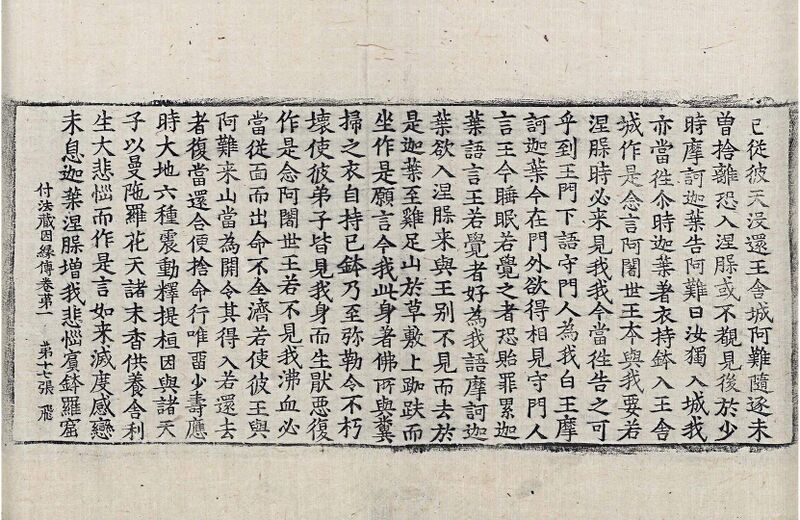 已從彼天沒還王舍城阿難隨逐未
曾捨離恐入涅槃或不覩見後於少
時摩訶迦葉告阿難曰汝獨入城我
亦當徃尒時迦葉著衣持鉢入王舍
城作是念言阿闍世王夲與我要若
涅槃時必来見我我今當徃告之可
乎到王門下語守門人為我白王摩
訶迦葉今在門外欲得相見守門人
言王今睡眠若覺之者恐貽罪累迦
葉語言王若覺者好為我語摩訶迦
葉欲入涅槃来與王别不見而去於
是迦葉至雞足山於草敷上跏趺而
坐作是願言今我此身著佛所與糞
掃之衣自持己鉢乃至弥勒令不朽
壞使彼弟子皆見我身而生猒惡復
作是念阿闍世王若不見我沸血必
當從面而出命不全濟若使彼王與
阿難来山當為開令其得入若還去
者復當還合便捨命行唯留少壽應
時大地六種震動釋提桓因與諸天
子以曼陁羅花天諸末香供養舍利
生大悲惱而作是言如来滅度感戀
未息迦葉涅槃增我悲惱賔鉢羅窟
付法藏因緣傳卷苐一　苐十七張　飛